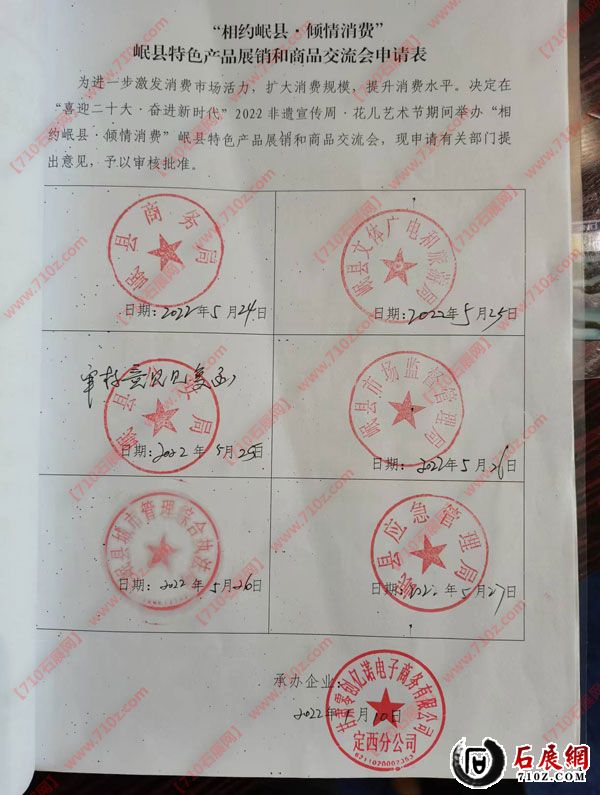 “相约岷县·倾情消费”
岷县特色产品展销和商品交流会申请表
为进一步激发消费市场活力，扩大消费规模，提升消费水平。决定在
“喜迎二十大·奋进新时代”2022非遗宣传周·花儿艺术节期间举办“相
约岷县·倾情消费”岷县特色产品展销和商品交流会，现申请有关部门提
出意见，予以审核批准。
岷县商务局
日期：2022年5月24日
岷县文体广电和旅游局
日期：2022年5月25日
审核意见见复函
岷县 局
日期：2022年5月25日
岷县市场监督管理局
日期：2022年5月26日
岷县城市管理综合执法
日期：2022年5月26日
岷县应急管理局
日期：2022.5月27日
承办企业：
甘肃零创亿诺电子商务有限公司
定西分公司
6211020007353
2022年 月10日
【710石展网】
www.710z.com
石展網
710Z.COM